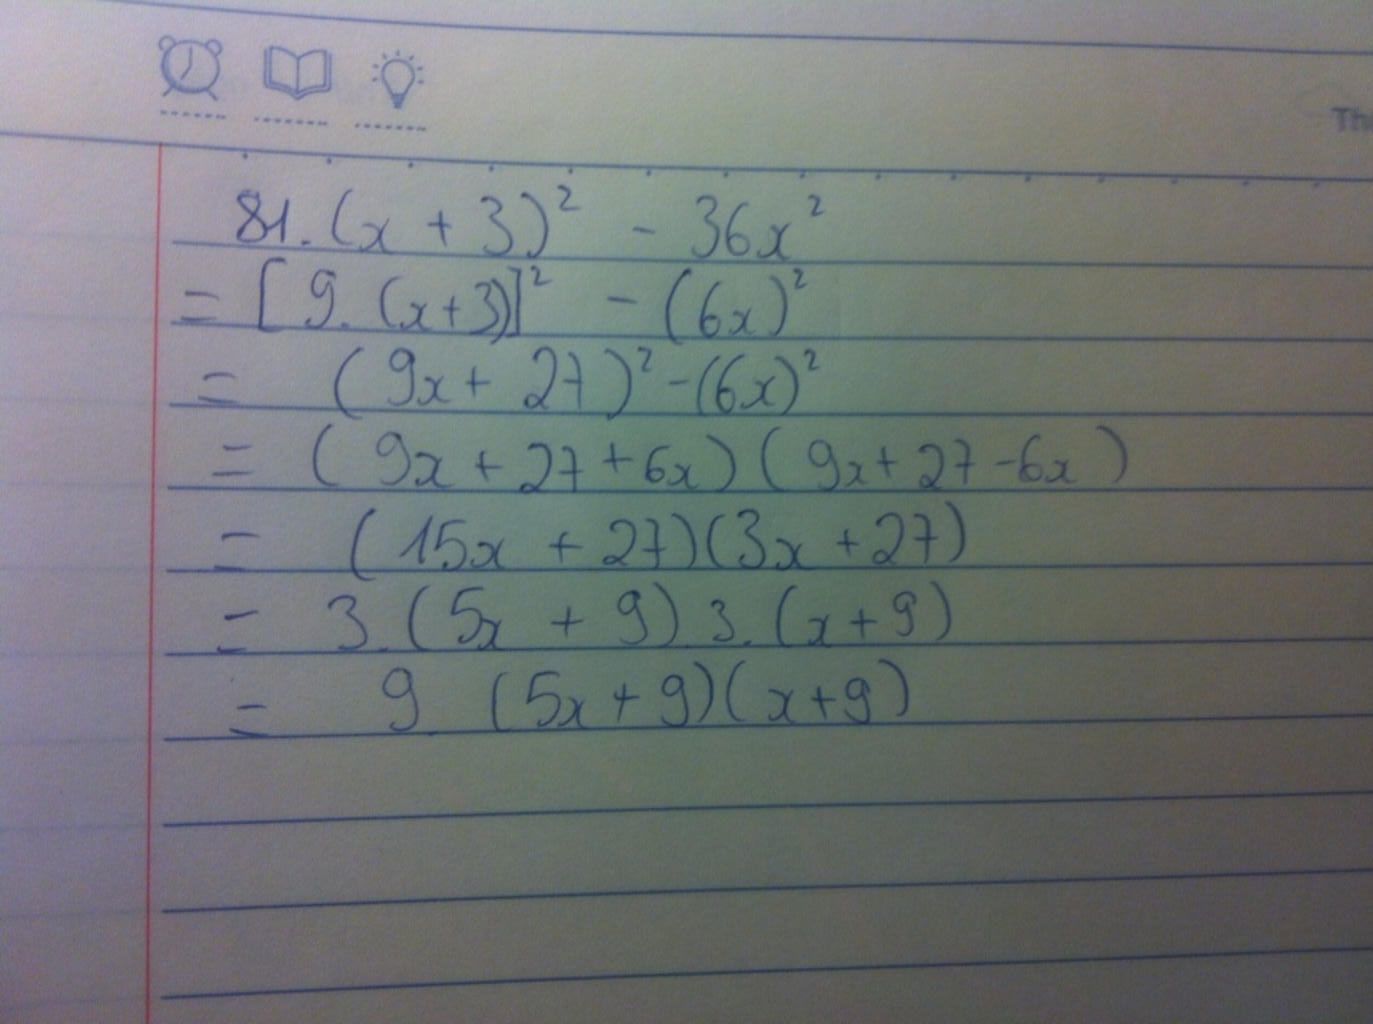 81.(x + 3)² - 36x²
= [9.(x+3)]² - (6x)²
= (9x + 27)² - (6x)²
= (9x + 27 + 6x)(9x + 27 - 6x)
= (15x + 27)(3x + 27)
= 3.(5x + 9).3.(x + 9)
= 9.(5x + 9)(x + 9)